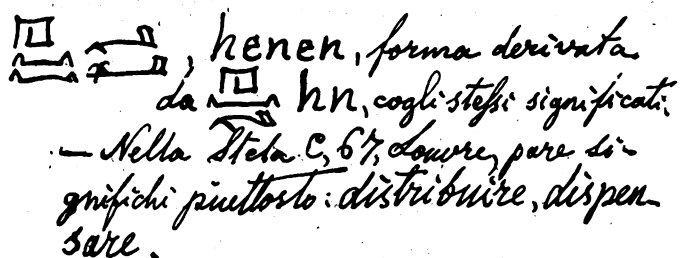 𓉔𓈖𓈖𓂝𓂡, henen, forma derivata
da 𓉔𓈖𓂡 hn, cogli stessi significati.
— Nella Stela C, 67, Louvre, pare si-
gnifichi piuttosto: distribuire, dispen-
sare.